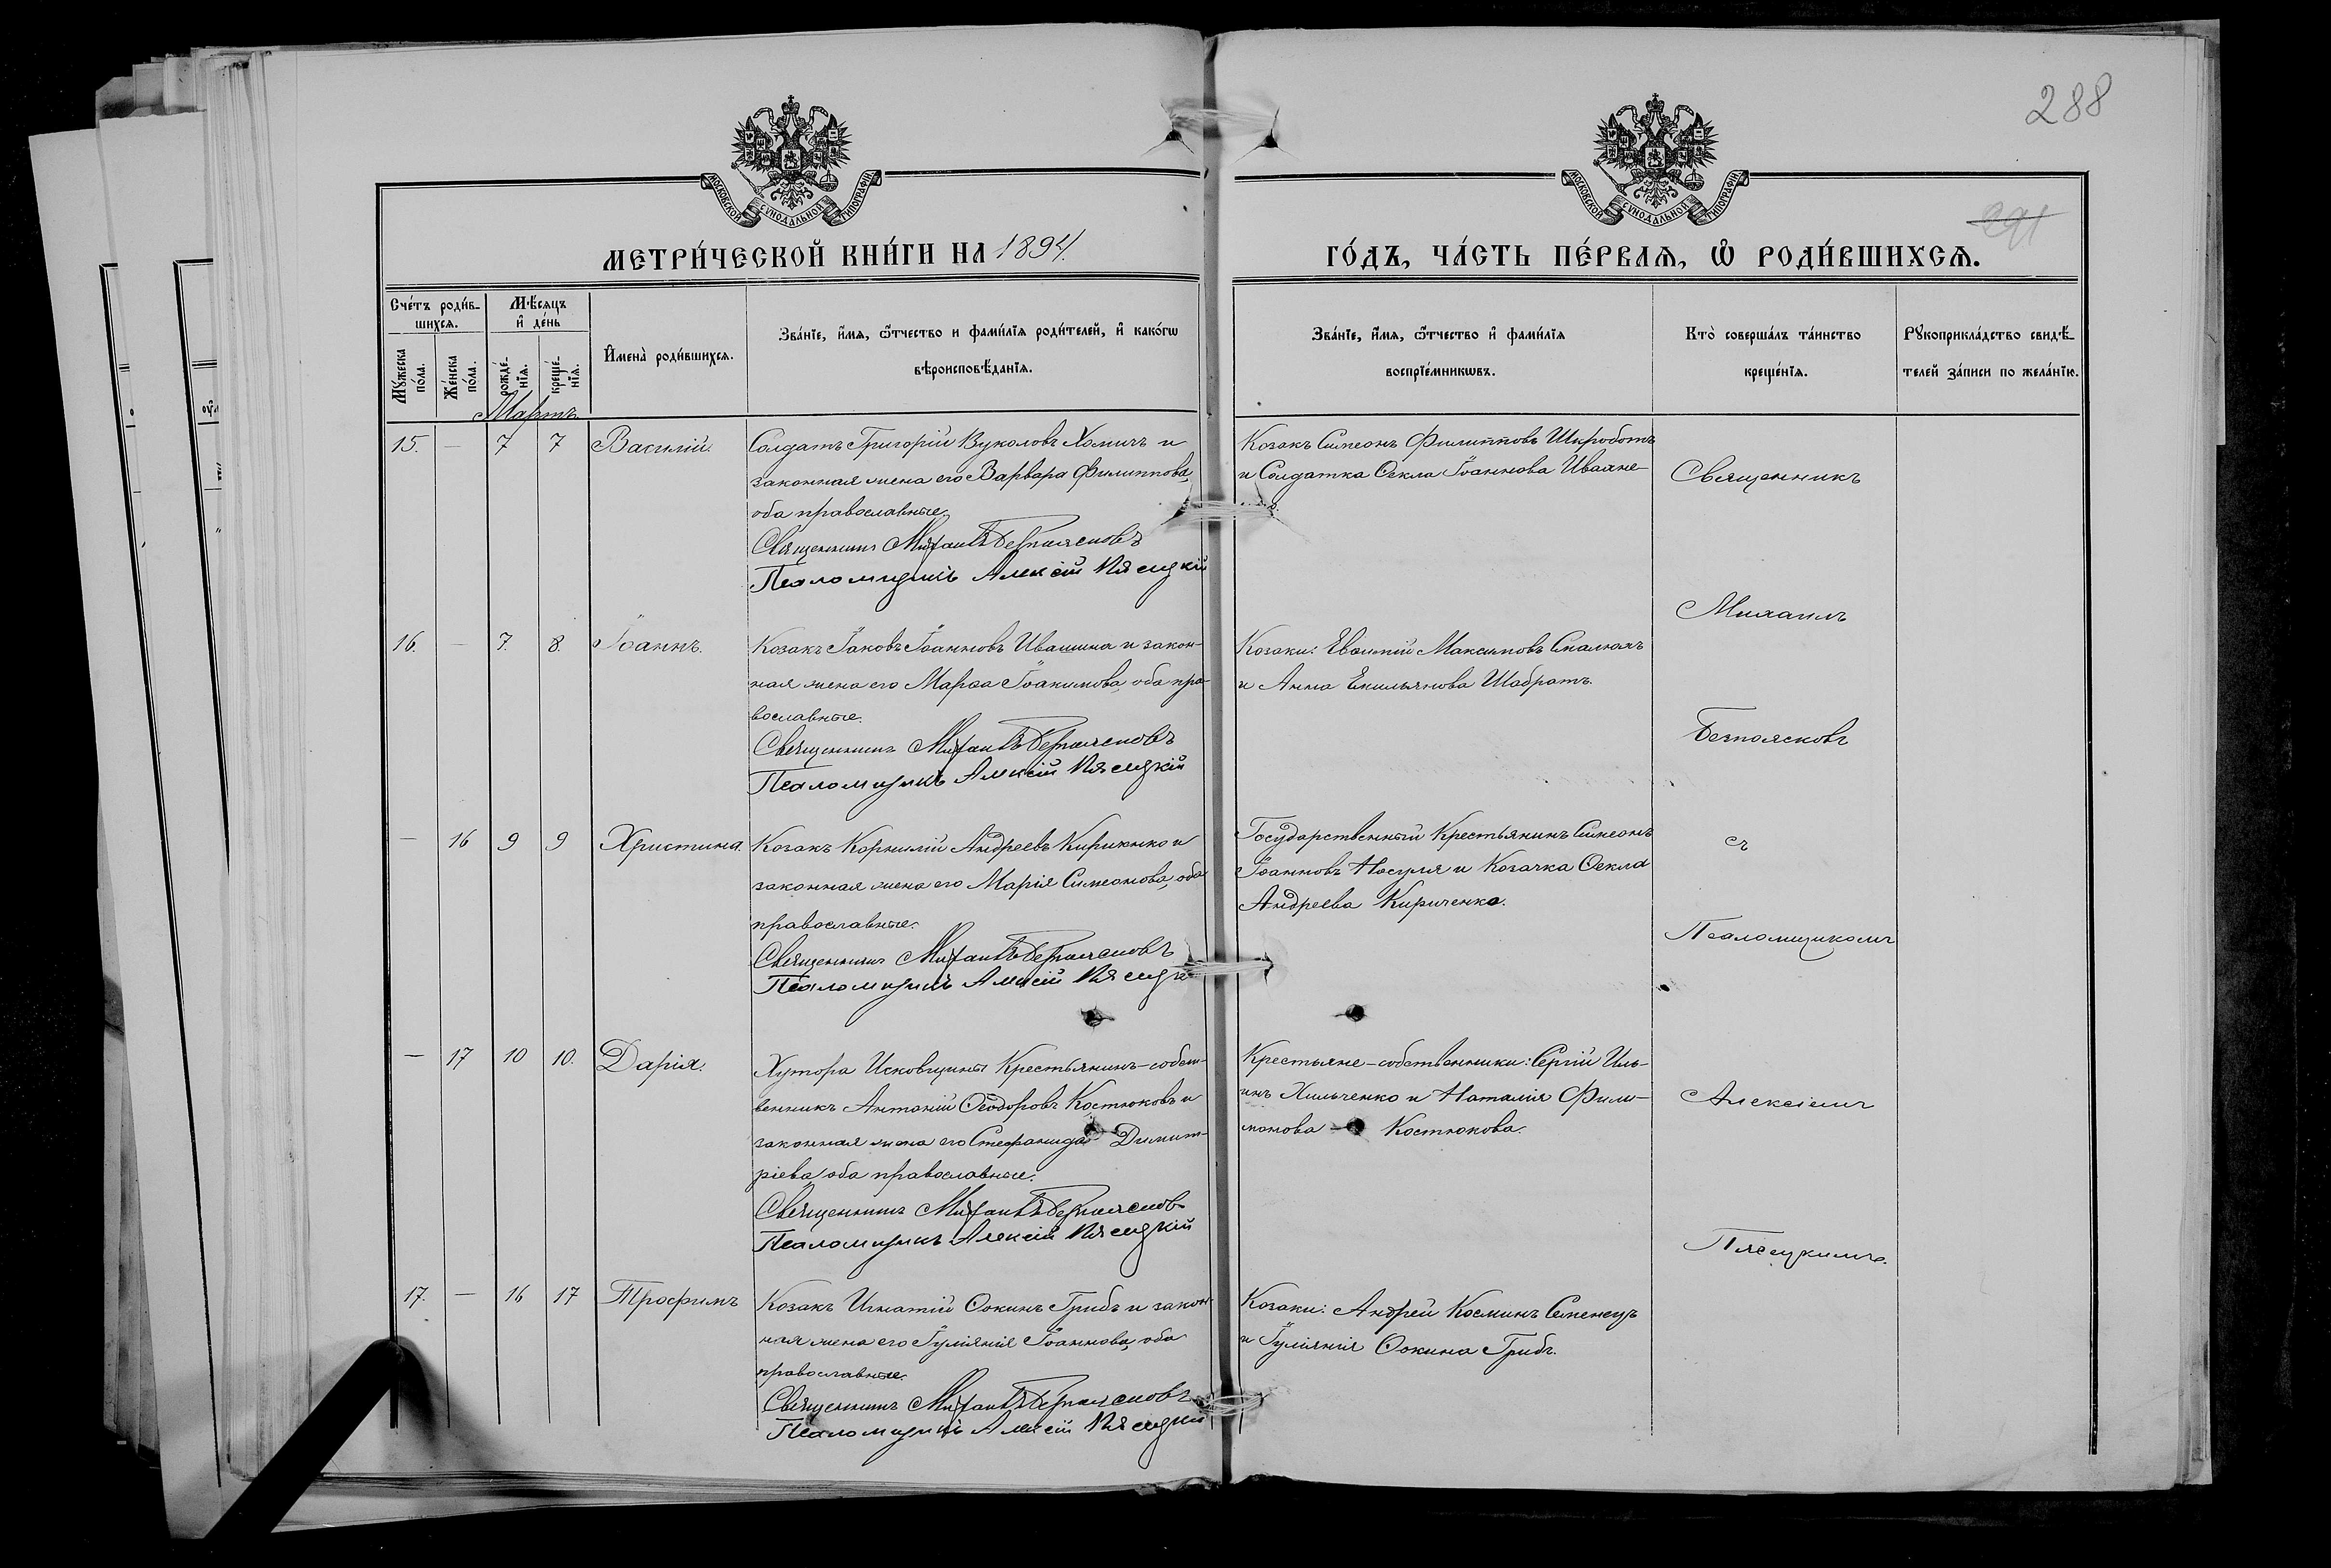 288
291
МОСКОВСКОЙ СѴНОДАЛЬНОЙ ТИПОГРАФІИ
МОСКОВСКОЙ СѴНОДАЛЬНОЙ ТИПОГРАФІИ
МЕТРИ́ЧЕСКОЙ КНИ́ГИ НА 1894.
ГО́ДЪ, ЧА́СТЬ ПЕ́РВАѦ, Ѡ҆ РОДИ́ВШИХСѦ.
Сче́тъ роди́в-
шихсѧ.
Мꙋ́жеска по́ла.
Же́нска по́ла.
Мѣ́сяцъ
и҆ де́нь
рожде́-
нїѧ.
креще́-
нїѧ.
И҆мена̀ роди́вшихсѧ.
Зва́нїе, и҆́мѧ, ѻ҆́тчество и фами́лїѧ роди́телей, и҆ како́гѡ
вѣроисповѣ́данїѧ.
Зва́нїе, и҆́мѧ, ѻ҆́тчество и҆ фами́лїѧ
воспрїе́мникѡвъ.
Кто̀ соверша́лъ та́инство
креще́нїѧ.
Рꙋкоприкла́дство свидѣ́-
телей за́писи по жела́нїю.
Мартъ
15. — 7 7 Василій. Солдатъ Григорій Вуколовъ Хомичъ и
законная жена его Варвара Филиппова,
оба православные.
Священникъ Михаилъ Безпоясковъ
Псаломщикъ Алексій Пясецкій
Козакъ Симеонъ Филипповъ Шкроботъ
и Солдатка Ѳекла Іоаннова
Священникъ
16. — 7. 8. Іоаннъ. Козакъ Іаковъ Іоанновъ Ивашина и закон-
ная жена его Марѳа Іоакимова, оба пра-
вославные.
Священникъ Михаилъ Безпоясковъ
Псаломщикъ Алексій Пясецкій
Козаки: Евѳимій Максимовъ
и Анна Емильянова Шабратъ.
Михаилъ
Безпоясковъ
— 16 9 9 Христина. Козакъ Корнилій Андреевъ Кириченко и
законная жена его Марія Симеонова, оба
православные.
Священникъ Михаилъ Безпоясковъ
Псаломщикъ Алексій
Государственный Крестьянинъ Симеонъ
Іоанновъ Носуля и Козачка Ѳекла
Андреева Кириченко.
съ
Псаломщикомъ
— 17 10 10. Дарія. Хутора Исковщины Крестьянинъ-собст-
венникъ Антоній Ѳеодоровъ Костюковъ и
законная жена его Стефанида Димит-
ріева, оба православные.
Священникъ Михаилъ Безпоясков
Псаломщикъ Алексій Пясецкій
Крестьяне-собственники: Сергій Иль-
инъ Хильченко и Наталія Фили-
монова — Костюкова.
Алексіемъ
Пясецкимъ.
17. — 16 17 Трофимъ Козакъ Игнатій Ѳокинъ Грибъ и закон-
ная жена его Іуліянія Іоаннова, оба
православные.
Священникъ Михаилъ Безпоясковъ
Псаломщикъ Алексій Пясецкій
Козаки: Андрей Косминъ Семенецъ
и Іуліянія Ѳокина Грибъ.